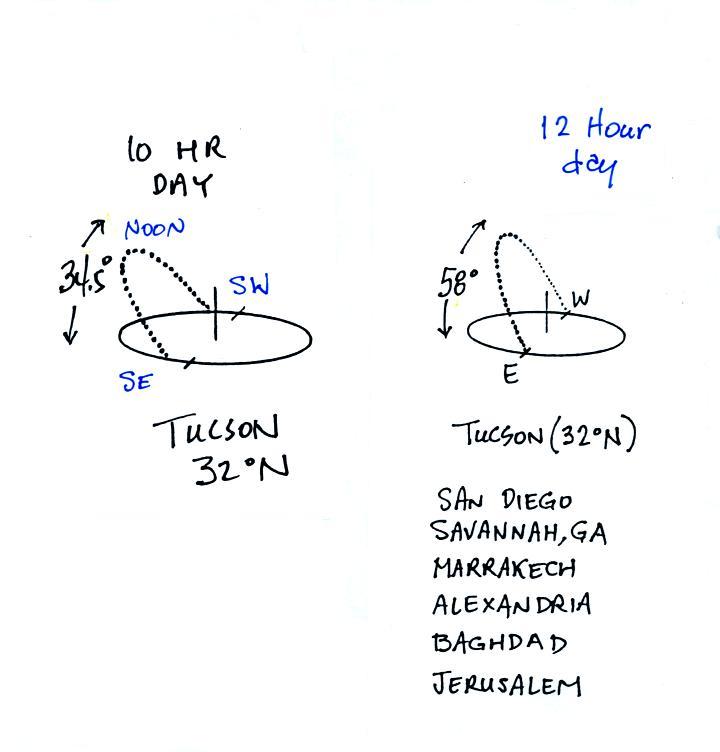 10 HR
DAY
NOON
34.5°
SW
SE
TUCSON
32°N
12 Hour
day
58°
W
E
TUCSON (32°N)
SAN DIEGO
SAVANNAH, GA
MARRAKECH
ALEXANDRIA
BAGHDAD
JERUSALEM